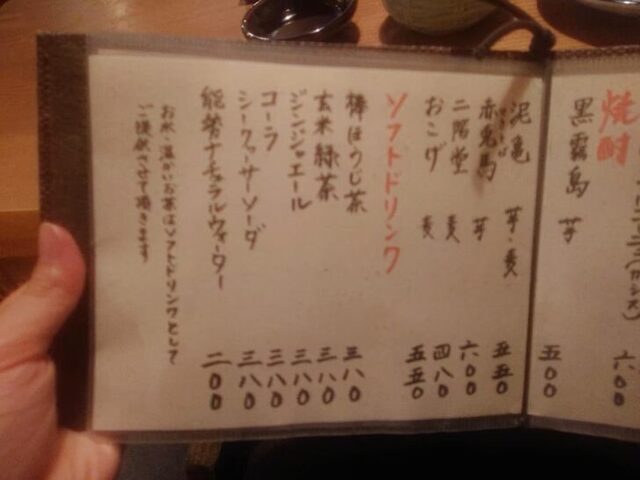 (カシス) 六〇〇
焼酎
黒霧島 芋 五〇〇
泥亀 芋・麦 五五〇
赤兎馬 芋 六〇〇
二階堂 麦 四八〇
おこげ 麦 五五〇
ソフトドリンク
棒ほうじ茶 三八〇
玄米緑茶 三八〇
ジンジャエール 三八〇
コーラ 三八〇
シークァーサソーダ 三八〇
能登ナチュラルウォーター 二〇〇
お水・温かいお茶はソフトドリンクとして
ご提供させて頂きます